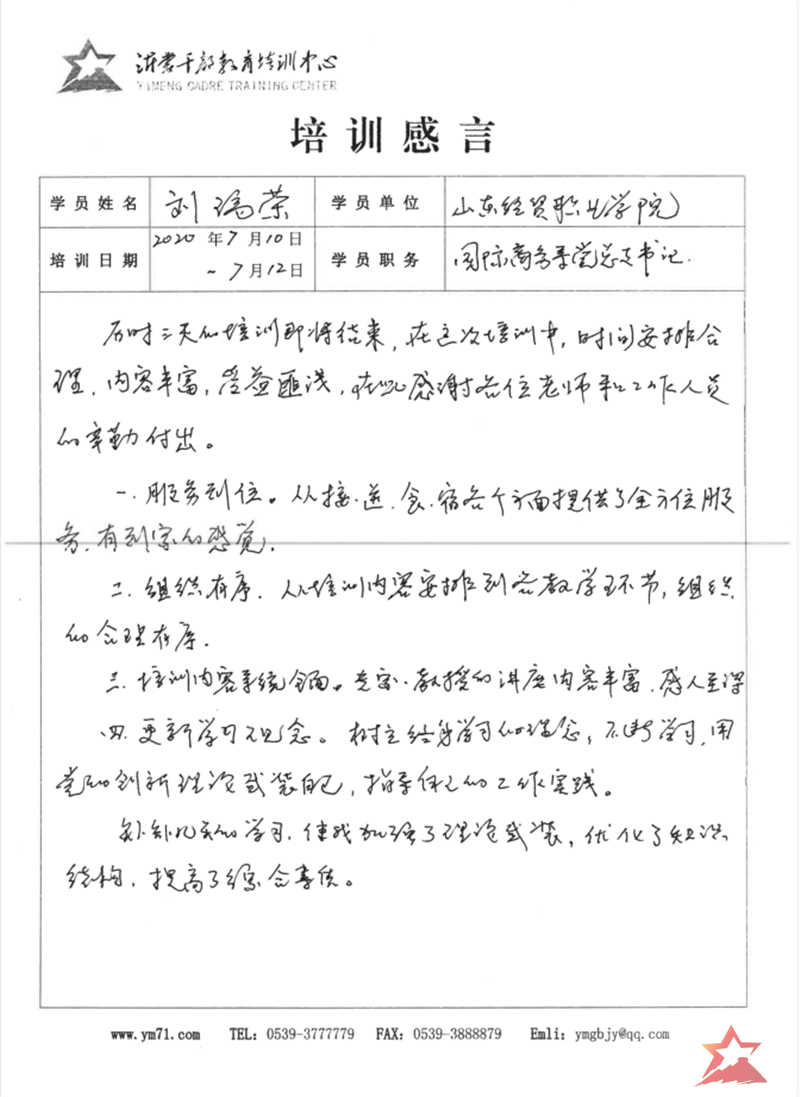 沂蒙干部教育培训中心
YIMENG CADRE TRAINING CENTER
培训感言
学员姓名 刘瑞荣 学员单位 山东经贸职业学院
培训日期 2020年7月10日 ~7月12日 学员职务 国际商务系党总支书记.
历时三天的培训即将结束,在这次培训中,时间安排合
理,内容丰富,受益匪浅,在此感谢各位老师和工作人员
的辛勤付出。
一.服务到位。从接.送.食.宿各个方面提供了全方位服
务,有到家的感觉.
二.组织有序.从培训内容安排到各教学环节,组织
的合理有序.
三.培训内容系统全面。专家.教授的讲座内容丰富.感人至深
四.更新学习观念。树立终身学习的理念,不断学习,用
党的创新理论武装自己,指导自己的工作实践。
短短几天的学习,使我加强了理论武装,优化了知识
结构,提高了综合素质。
www.ym71.com TEL: 0539-3777779 FAX: 0539-3888879 Emli: ymgbjy@qq.com